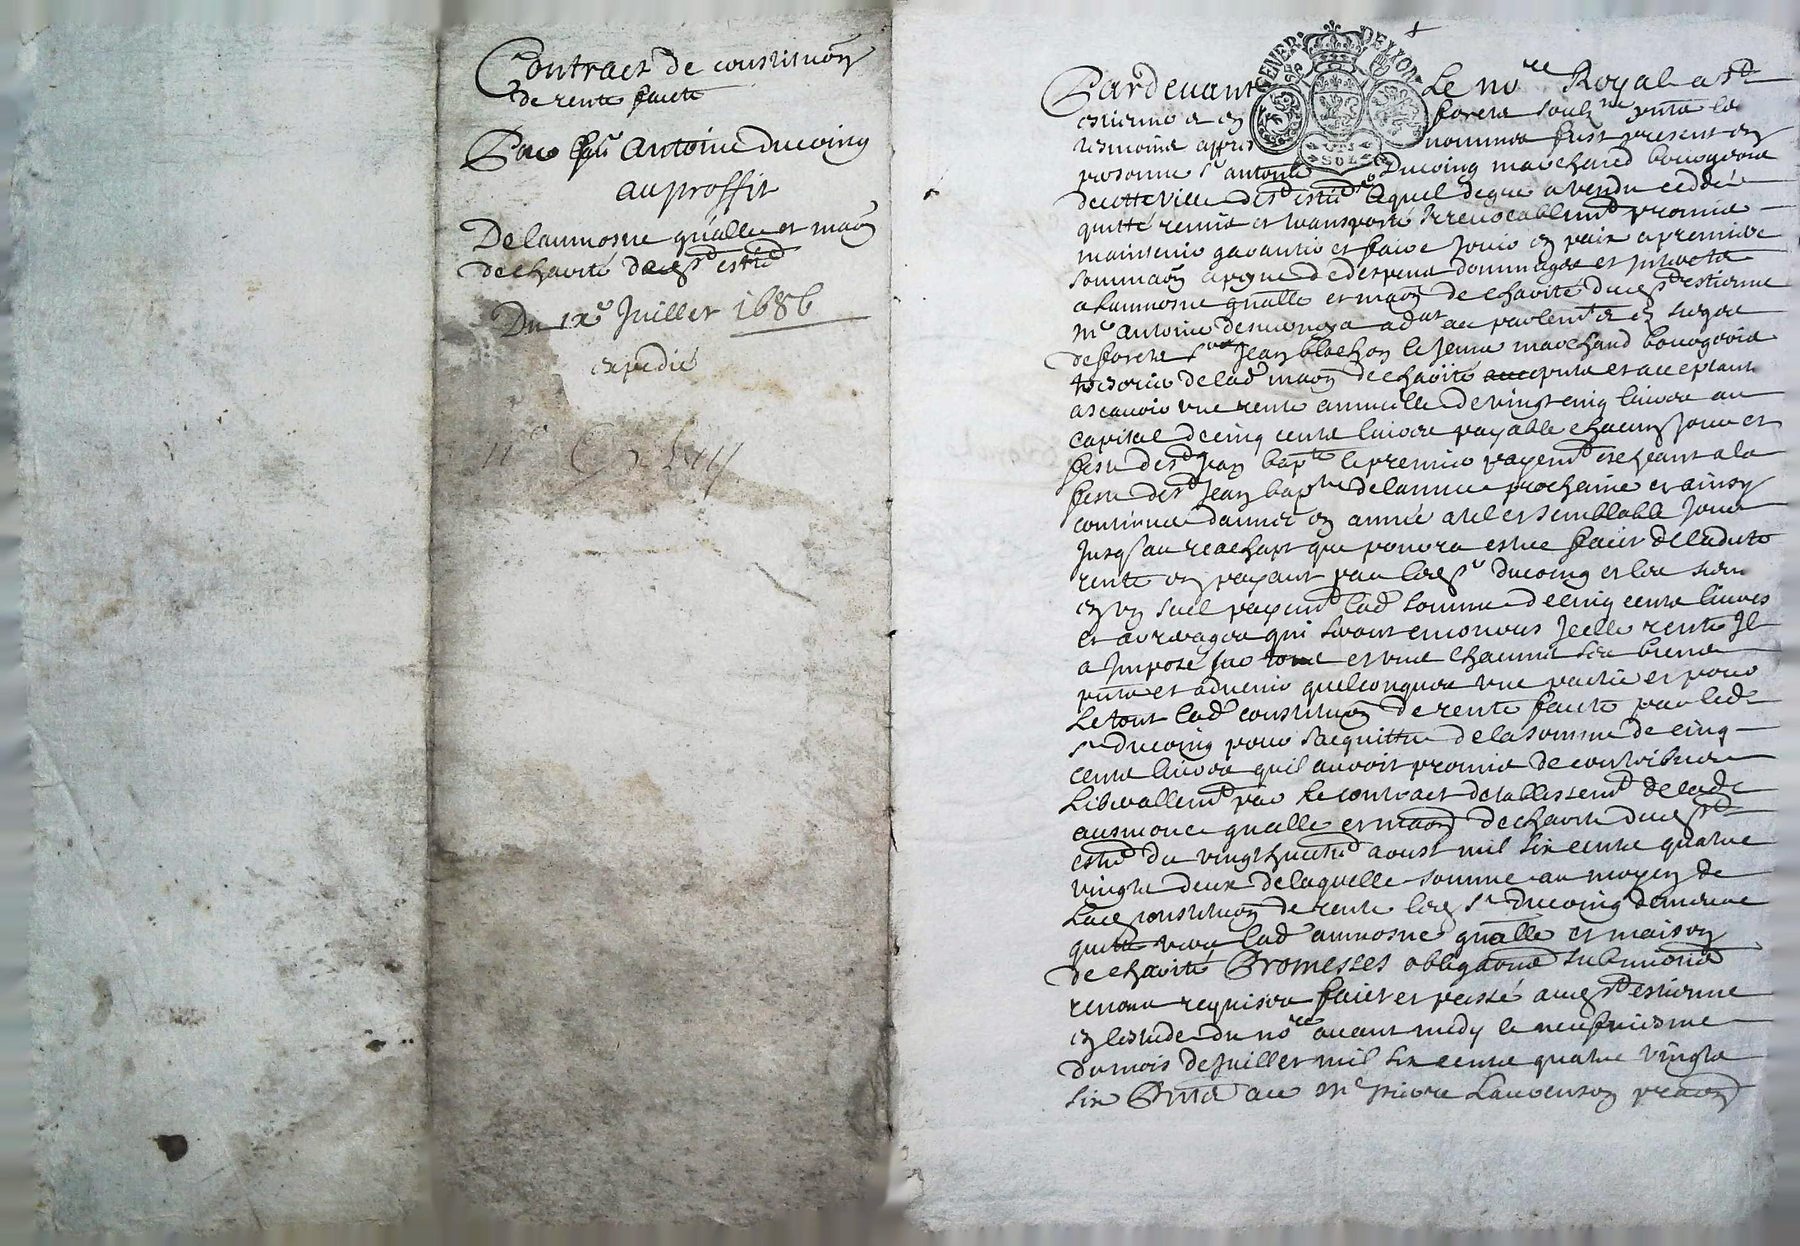 Contract de constitu͠on
de rente faicte
Par Sr Antoine Ducoing
au proffit
De laumosne gn͠alle et mai͠on
de charité de cested ville
Du IXe Juillet 1686
expedié
GENER. DE LYON
UN SOL
Pardevant Le nore Royal a St
estienne en forest soubsne p͠nts les
tesmoins apres nommes fust present en
personne sr antoine Ducoing marchand bourgeois
de cette ville de St estne lequel de gré a vendu ceddé
quitté remis et transporté irrevocablemt promis
maintenir garantir et faire Jouir en paix a premiere
somma͠on a peyne de despens dommages et interests
a laumosne gn͠alle et mai͠on de charité dud St estienne
Me Antoine adat au parlemt et en sieges
de forests sieur Jean blachon le Jeune marchand bourgeois
tresorier de lad mai͠on de charité p͠nts et acceptant
ascavoir une rente annuelle de vingt cinq livres au
capital de cinq cents livres payable chacun Jour et
feste de St Jean bapte le premier payemt escheant a la
feste de St Jean bapte de lannee prochaine et ainsy
continuer dannée en année a tel et semblable Jour
Jusqs au reachapt que pourra estre faict de ladite
rente en payant par led sr Ducoing et les siens
en un seul payemt lad somme de cinq cents livres
et arrerages qui seront encourus Icelle rente Il
a Imposé sur tous et un chacuns ses biens
p͠nts et advenir quelconques une partie et pour
Le tout lad constitu͠on de rente faicte par led
sr Ducoing pour sacquitter de la somme de cinq
cents livres quil auroit promis de contribuer
Liberallemt par le contract detablissemt de lad
aumosne gn͠alle et mai͠on de charité dud St
estne du vingt huictie aoust mil six cents quatre
vingts deux de laquelle somme au moyen de
lad constitu͠on de rente led sr Ducoing demeure
quitte vers lad aumosne gn͠alle et maison
de charité Promesses obliga͠ons submi͠ons
renon requises faict et passé aud St estienne
en lestude du nore avant midy le neufviesme
du mois de Juillet mil six cents quatre vingts
six P͠nts a ce Me pierre Laurenson